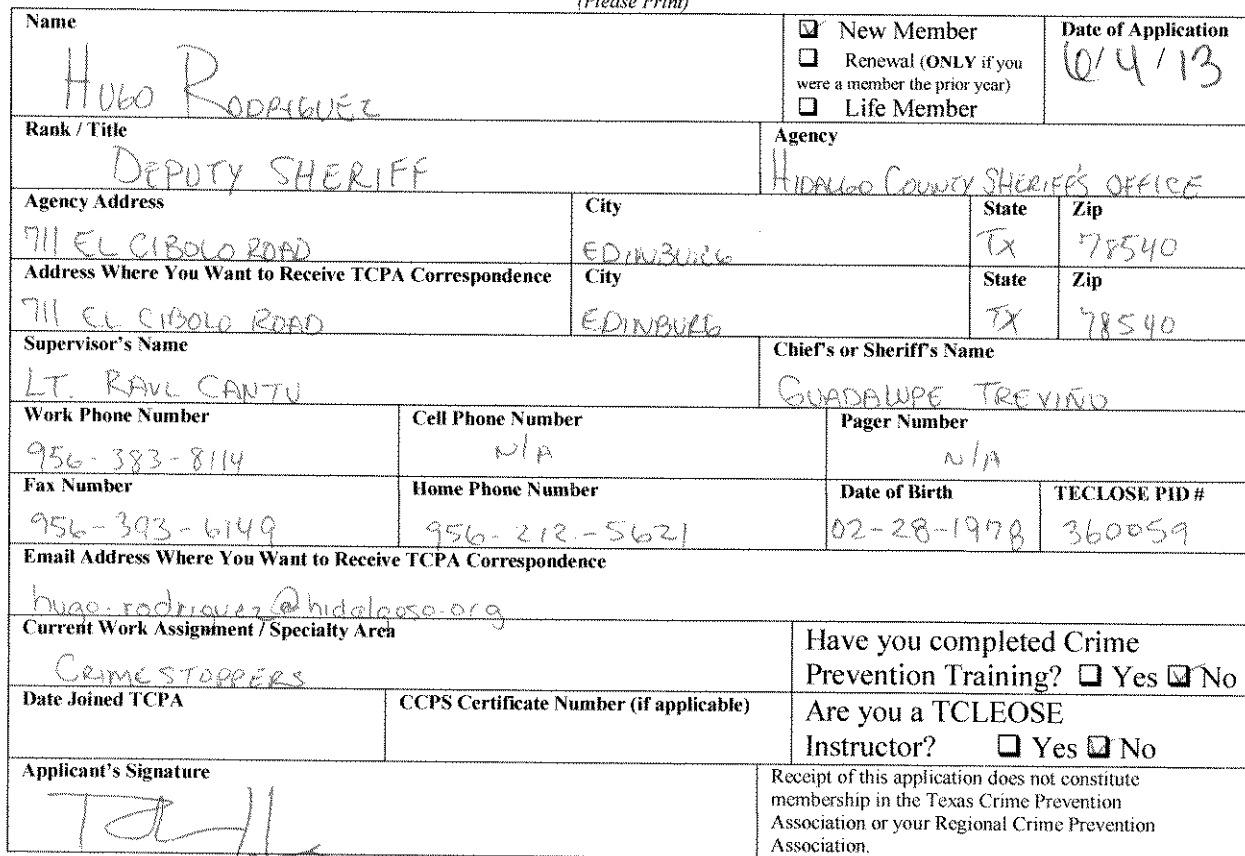 (Please Print)
Name
HUGO RODRIGUEZ
☑ New Member
☐ Renewal (ONLY if you
were a member the prior year)
☐ Life Member
Date of Application
6/4/13
Rank / Title
DEPUTY SHERIFF
Agency
HIDALGO COUNTY SHERIFF'S OFFICE
Agency Address
711 EL CIBOLO ROAD
City
EDINBURG
State
TX
Zip
78540
Address Where You Want to Receive TCPA Correspondence
711 EL CIBOLO ROAD
City
EDINBURG
State
TX
Zip
78540
Supervisor's Name
LT. RAUL CANTU
Chief's or Sheriff's Name
GUADALUPE TREVIÑO
Work Phone Number
956-383-8114
Cell Phone Number
N/A
Pager Number
N/A
Fax Number
956-393-6149
Home Phone Number
956-212-5621
Date of Birth
02-28-1978
TECLOSE PID #
360059
Email Address Where You Want to Receive TCPA Correspondence
hugo.rodriguez@hidalgoso.org
Current Work Assignment / Specialty Area
CRIMESTOPPERS
Have you completed Crime
Prevention Training? ☐ Yes ☑ No
Date Joined TCPA
CCPS Certificate Number (if applicable)
Are you a TCLEOSE
Instructor? ☐ Yes ☑ No
Applicant's Signature
Receipt of this application does not constitute
membership in the Texas Crime Prevention
Association or your Regional Crime Prevention
Association.